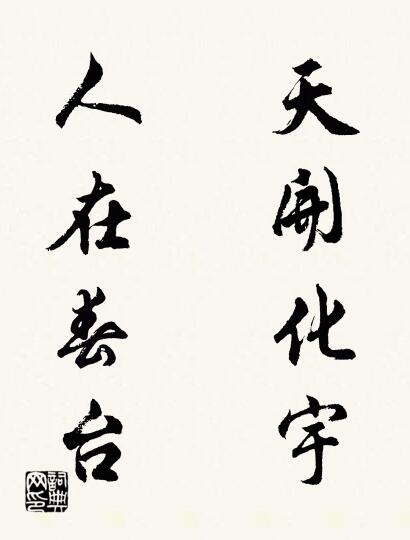 天開化宇
人在春台
詞典網印